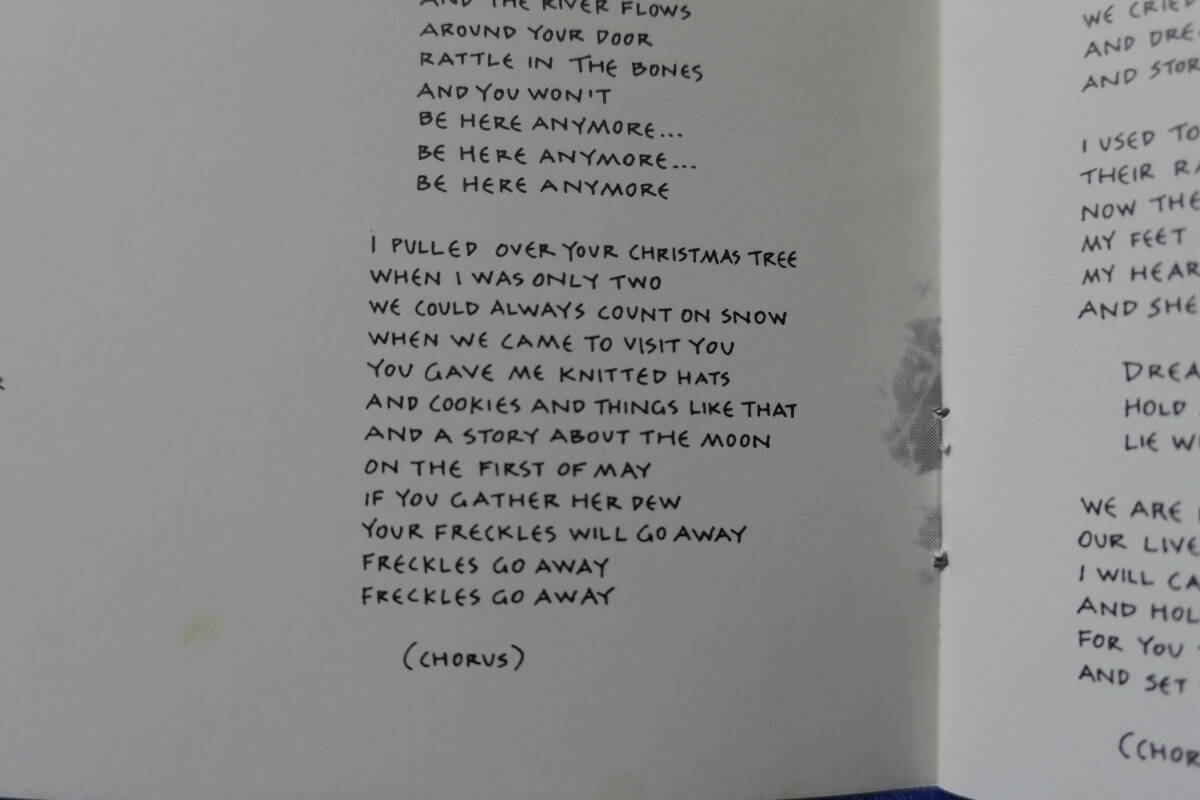 AND THE RIVER FLOWS
AROUND YOUR DOOR
RATTLE IN THE BONES
AND YOU WON'T
BE HERE ANYMORE...
BE HERE ANYMORE...
BE HERE ANYMORE
I PULLED OVER YOUR CHRISTMAS TREE
WHEN I WAS ONLY TWO
WE COULD ALWAYS COUNT ON SNOW
WHEN WE CAME TO VISIT YOU
YOU GAVE ME KNITTED HATS
AND COOKIES AND THINGS LIKE THAT
AND A STORY ABOUT THE MOON
ON THE FIRST OF MAY
IF YOU GATHER HER DEW
YOUR FRECKLES WILL GO AWAY
FRECKLES GO AWAY
FRECKLES GO AWAY
(CHORUS)
WE CRIED
AND
AND
I USED TO
THEIR
NOW
MY FEET
MY
AND SHE
HOLD
LIE
WE ARE
OUR
I WILL
AND
FOR YOU
AND SET